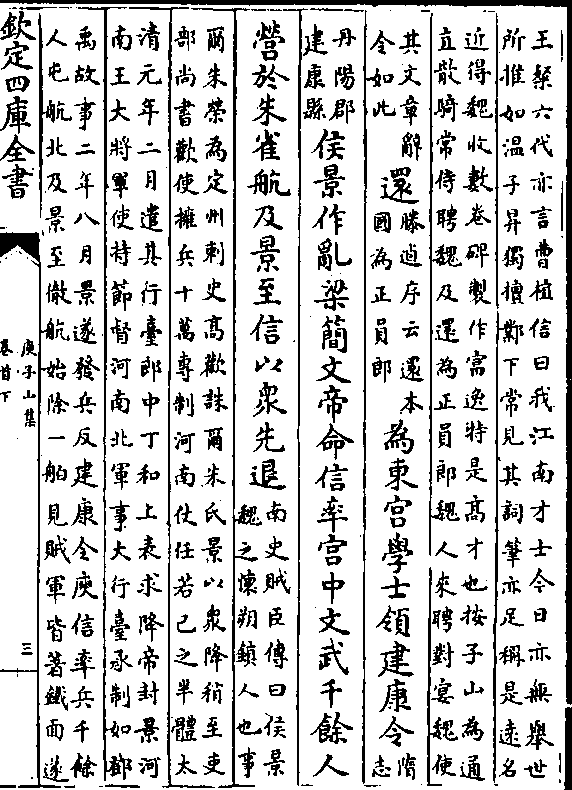 王粲六代亦言曹植信曰我江南才士今日亦無舉世
所推如温子昇獨擅鄴下常見其詞筆亦足稱是逺名
近得魏收數卷碑製作富逸特是髙才也按子山為通
直散騎常侍聘魏及還為正員郎魏人來聘對宴魏使
其文章辭
令如此
還
滕逌序云還本
國為正員郎
為東宫學士領建康令
隋
志
丹陽郡
建康縣
侯景作亂梁簡文帝命信率宫中文武千餘人
營於朱雀航及景至信以衆先退
南史賊臣傳曰侯景
魏之懐朔鎮人也事
爾朱榮為定州刺史髙歡誅爾朱氏景以衆降稍至吏
部尚書歡使擁兵十萬専制河南仗任若已之半體太
清元年二月遣其行臺郎中丁和上表求降帝封景河
南王大將軍使持節督河南北軍事大行臺承制如鄧
禹故事二年八月景遂發兵反建康令庾信率兵千餘
人屯航北及景至徹航始除一舶見賊軍皆著鐵面遂
欽定四庫全書
庾子山集
卷首下
三